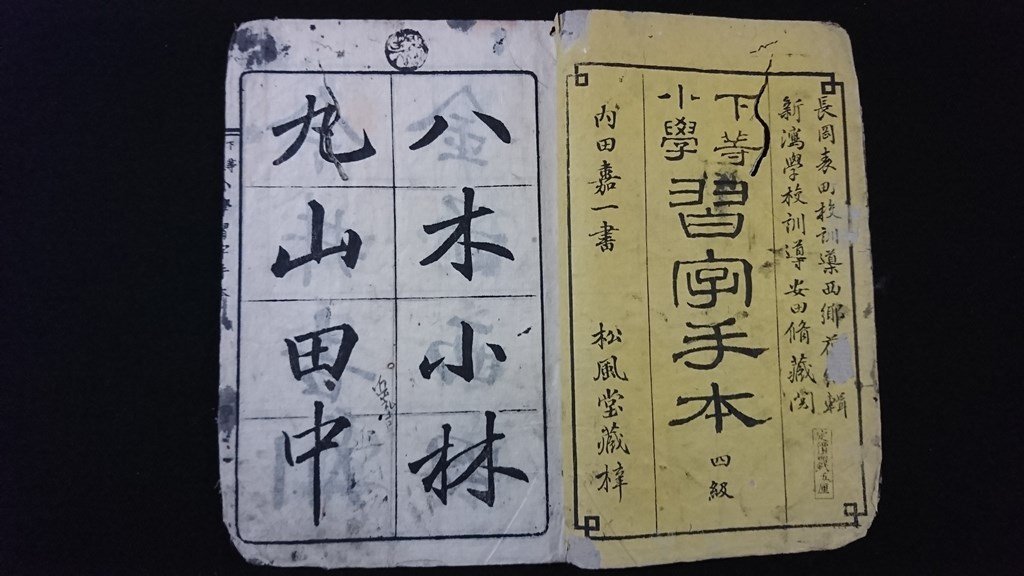 長岡表町校訓導西郷
輯
新潟學校訓導安田脩藏閲
下等
小學
習字手本
四級
内田嘉一書
松風堂藏梓
八木小林
九山田中